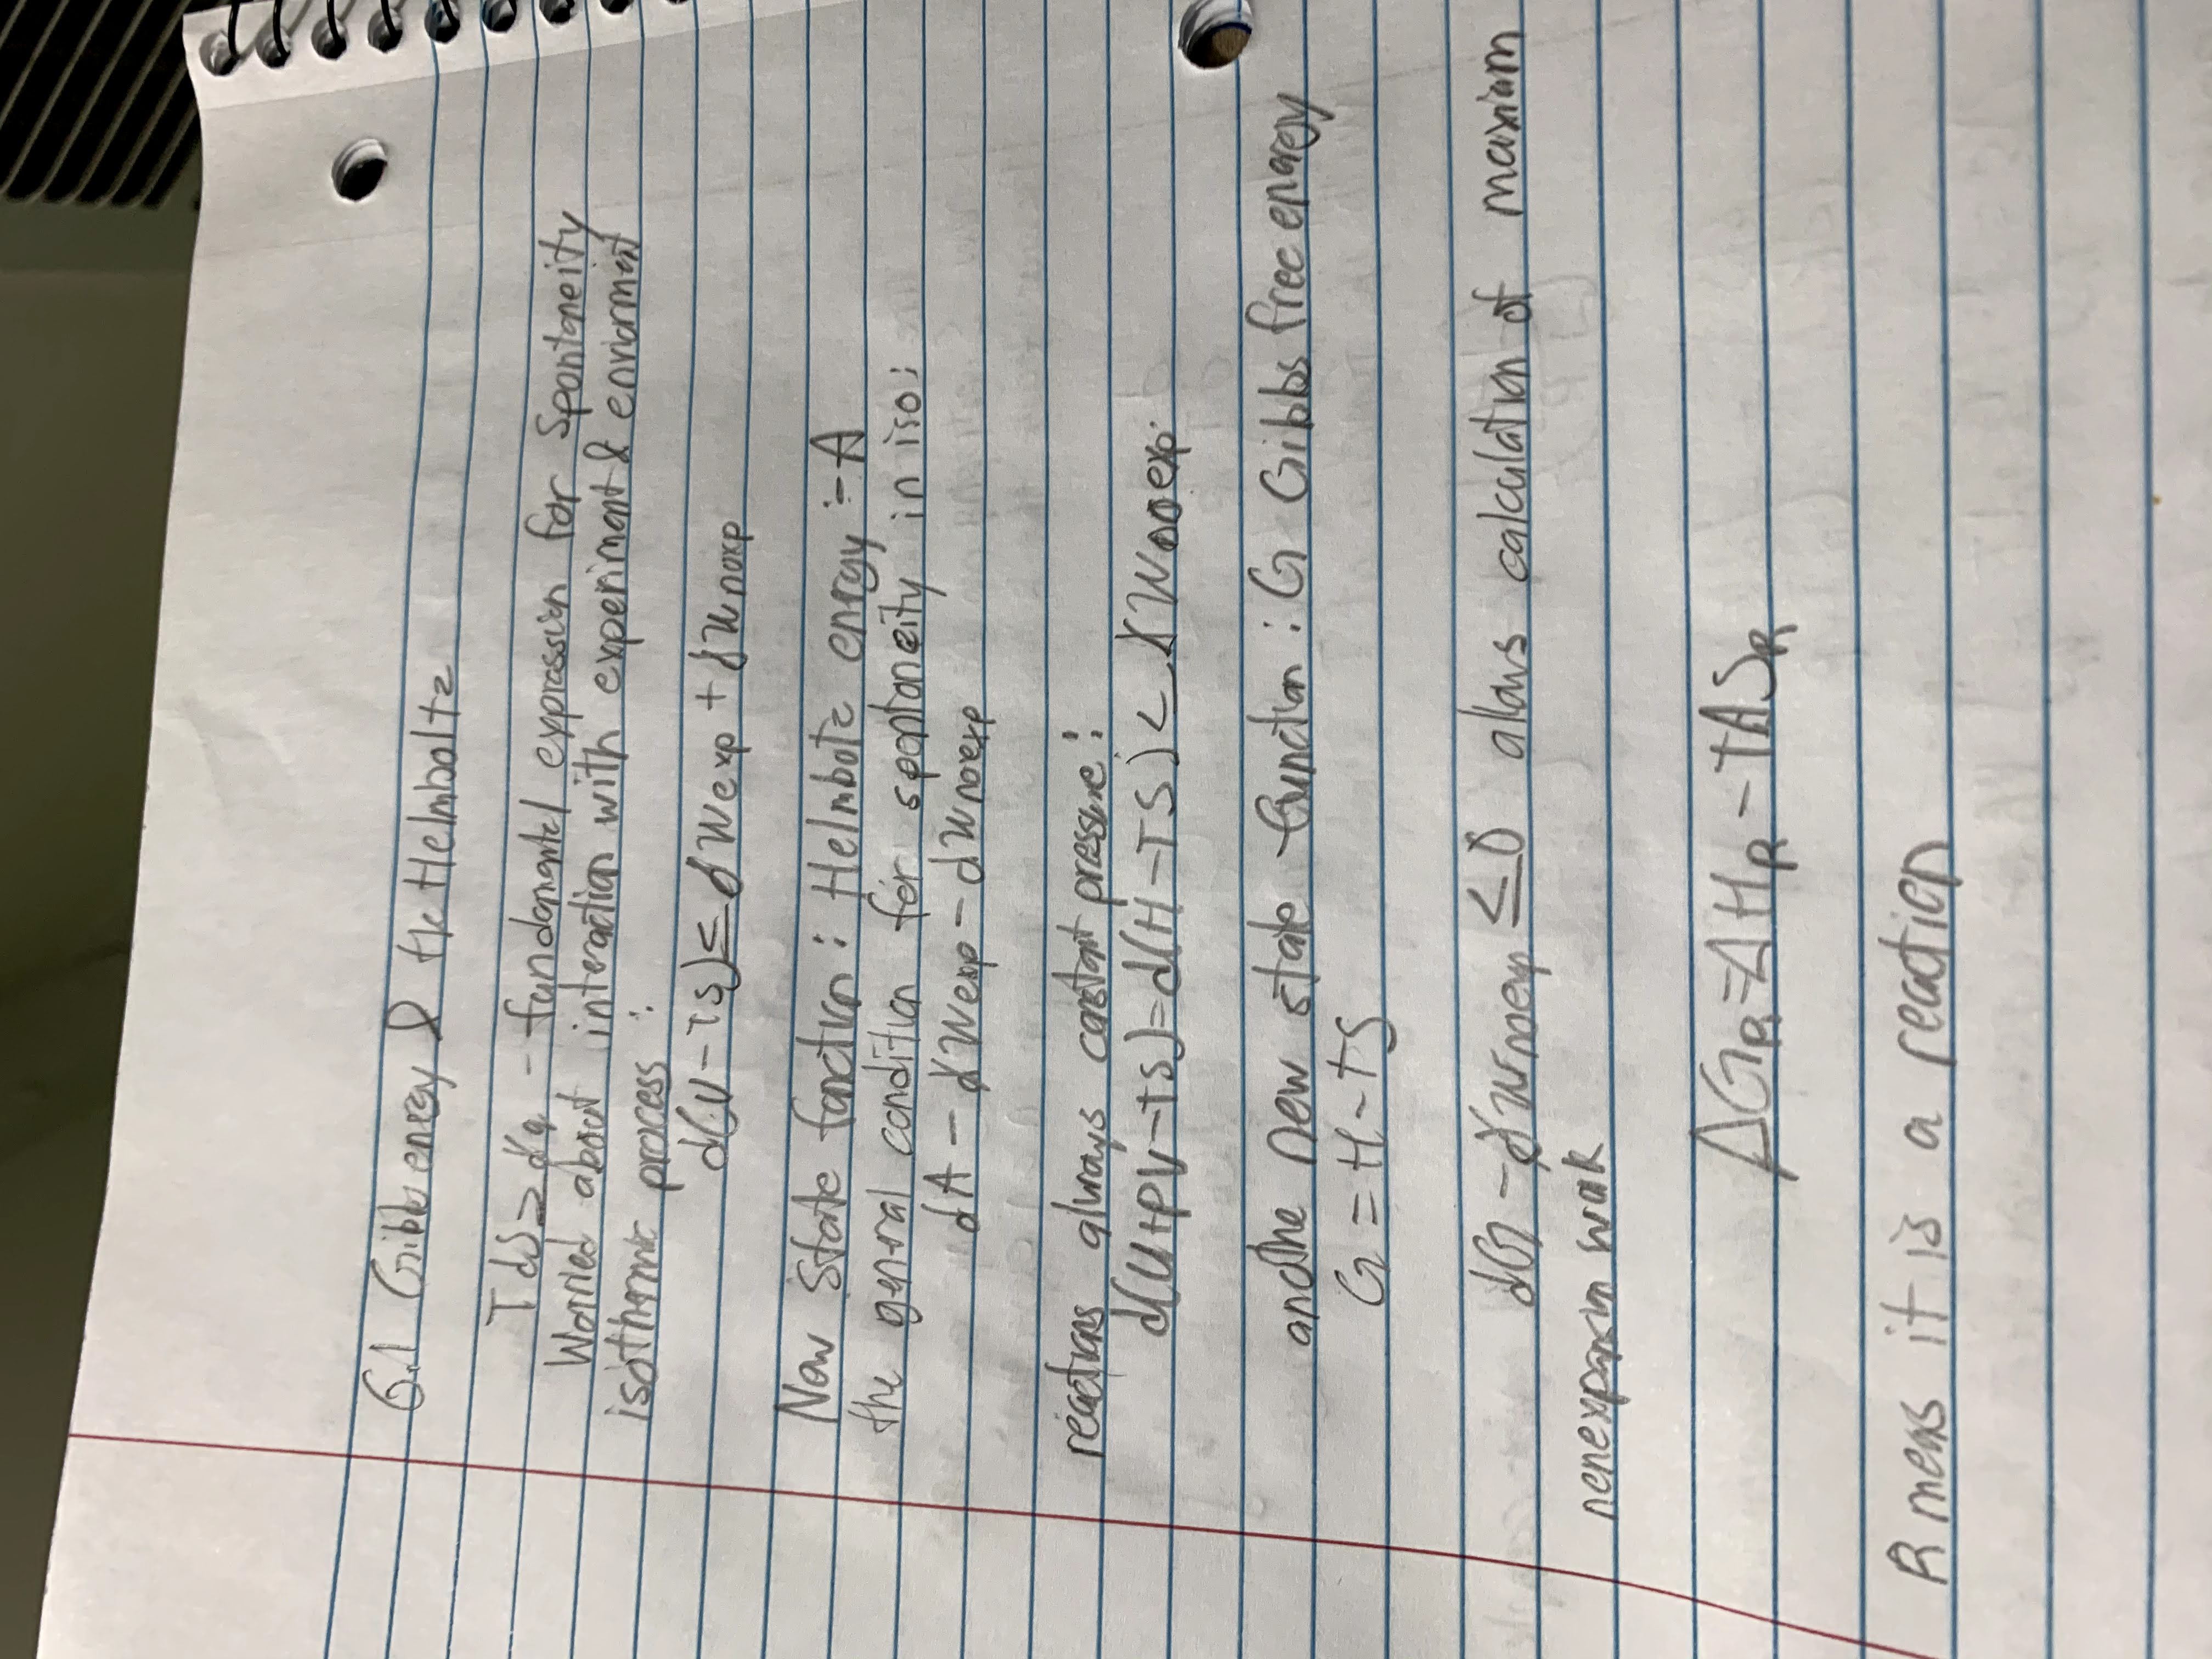 6.1 Gibbs energy & the Helmboltz
TdS ≥ đq - fundamental expression for Spontaneity
Worried about interaction with experiment & enviorment
isothermic process :
d(U-TS) ≤ đWexp + đWnoexp
New State function : Helmboltz energy :- A
the general condition for spontaneity in iso:
dA - đWexp - dWnoexp
reactions always constant pressure :
d(U+PV-TS)=d(H-TS) ≤ đWnoexp
anothe new state function : G Gibbs free energy
G = H-TS
dG - đWnoexp ≤ 0 allows calculation of maxium
nonexpansion work
ΔGR=ΔHR-TΔSR
R means it is a reaction